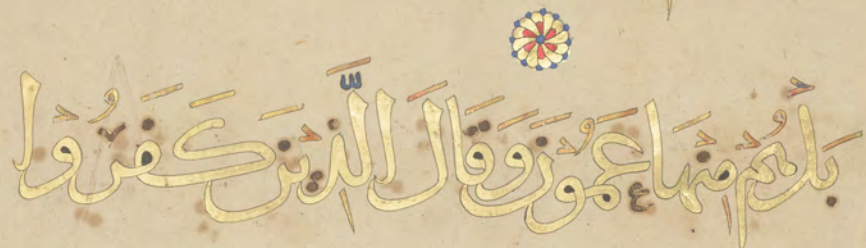 بَلْ هُمْ مِنْهَا عَمُونَ وَقَالَ الَّذِينَ كَفَرُوا